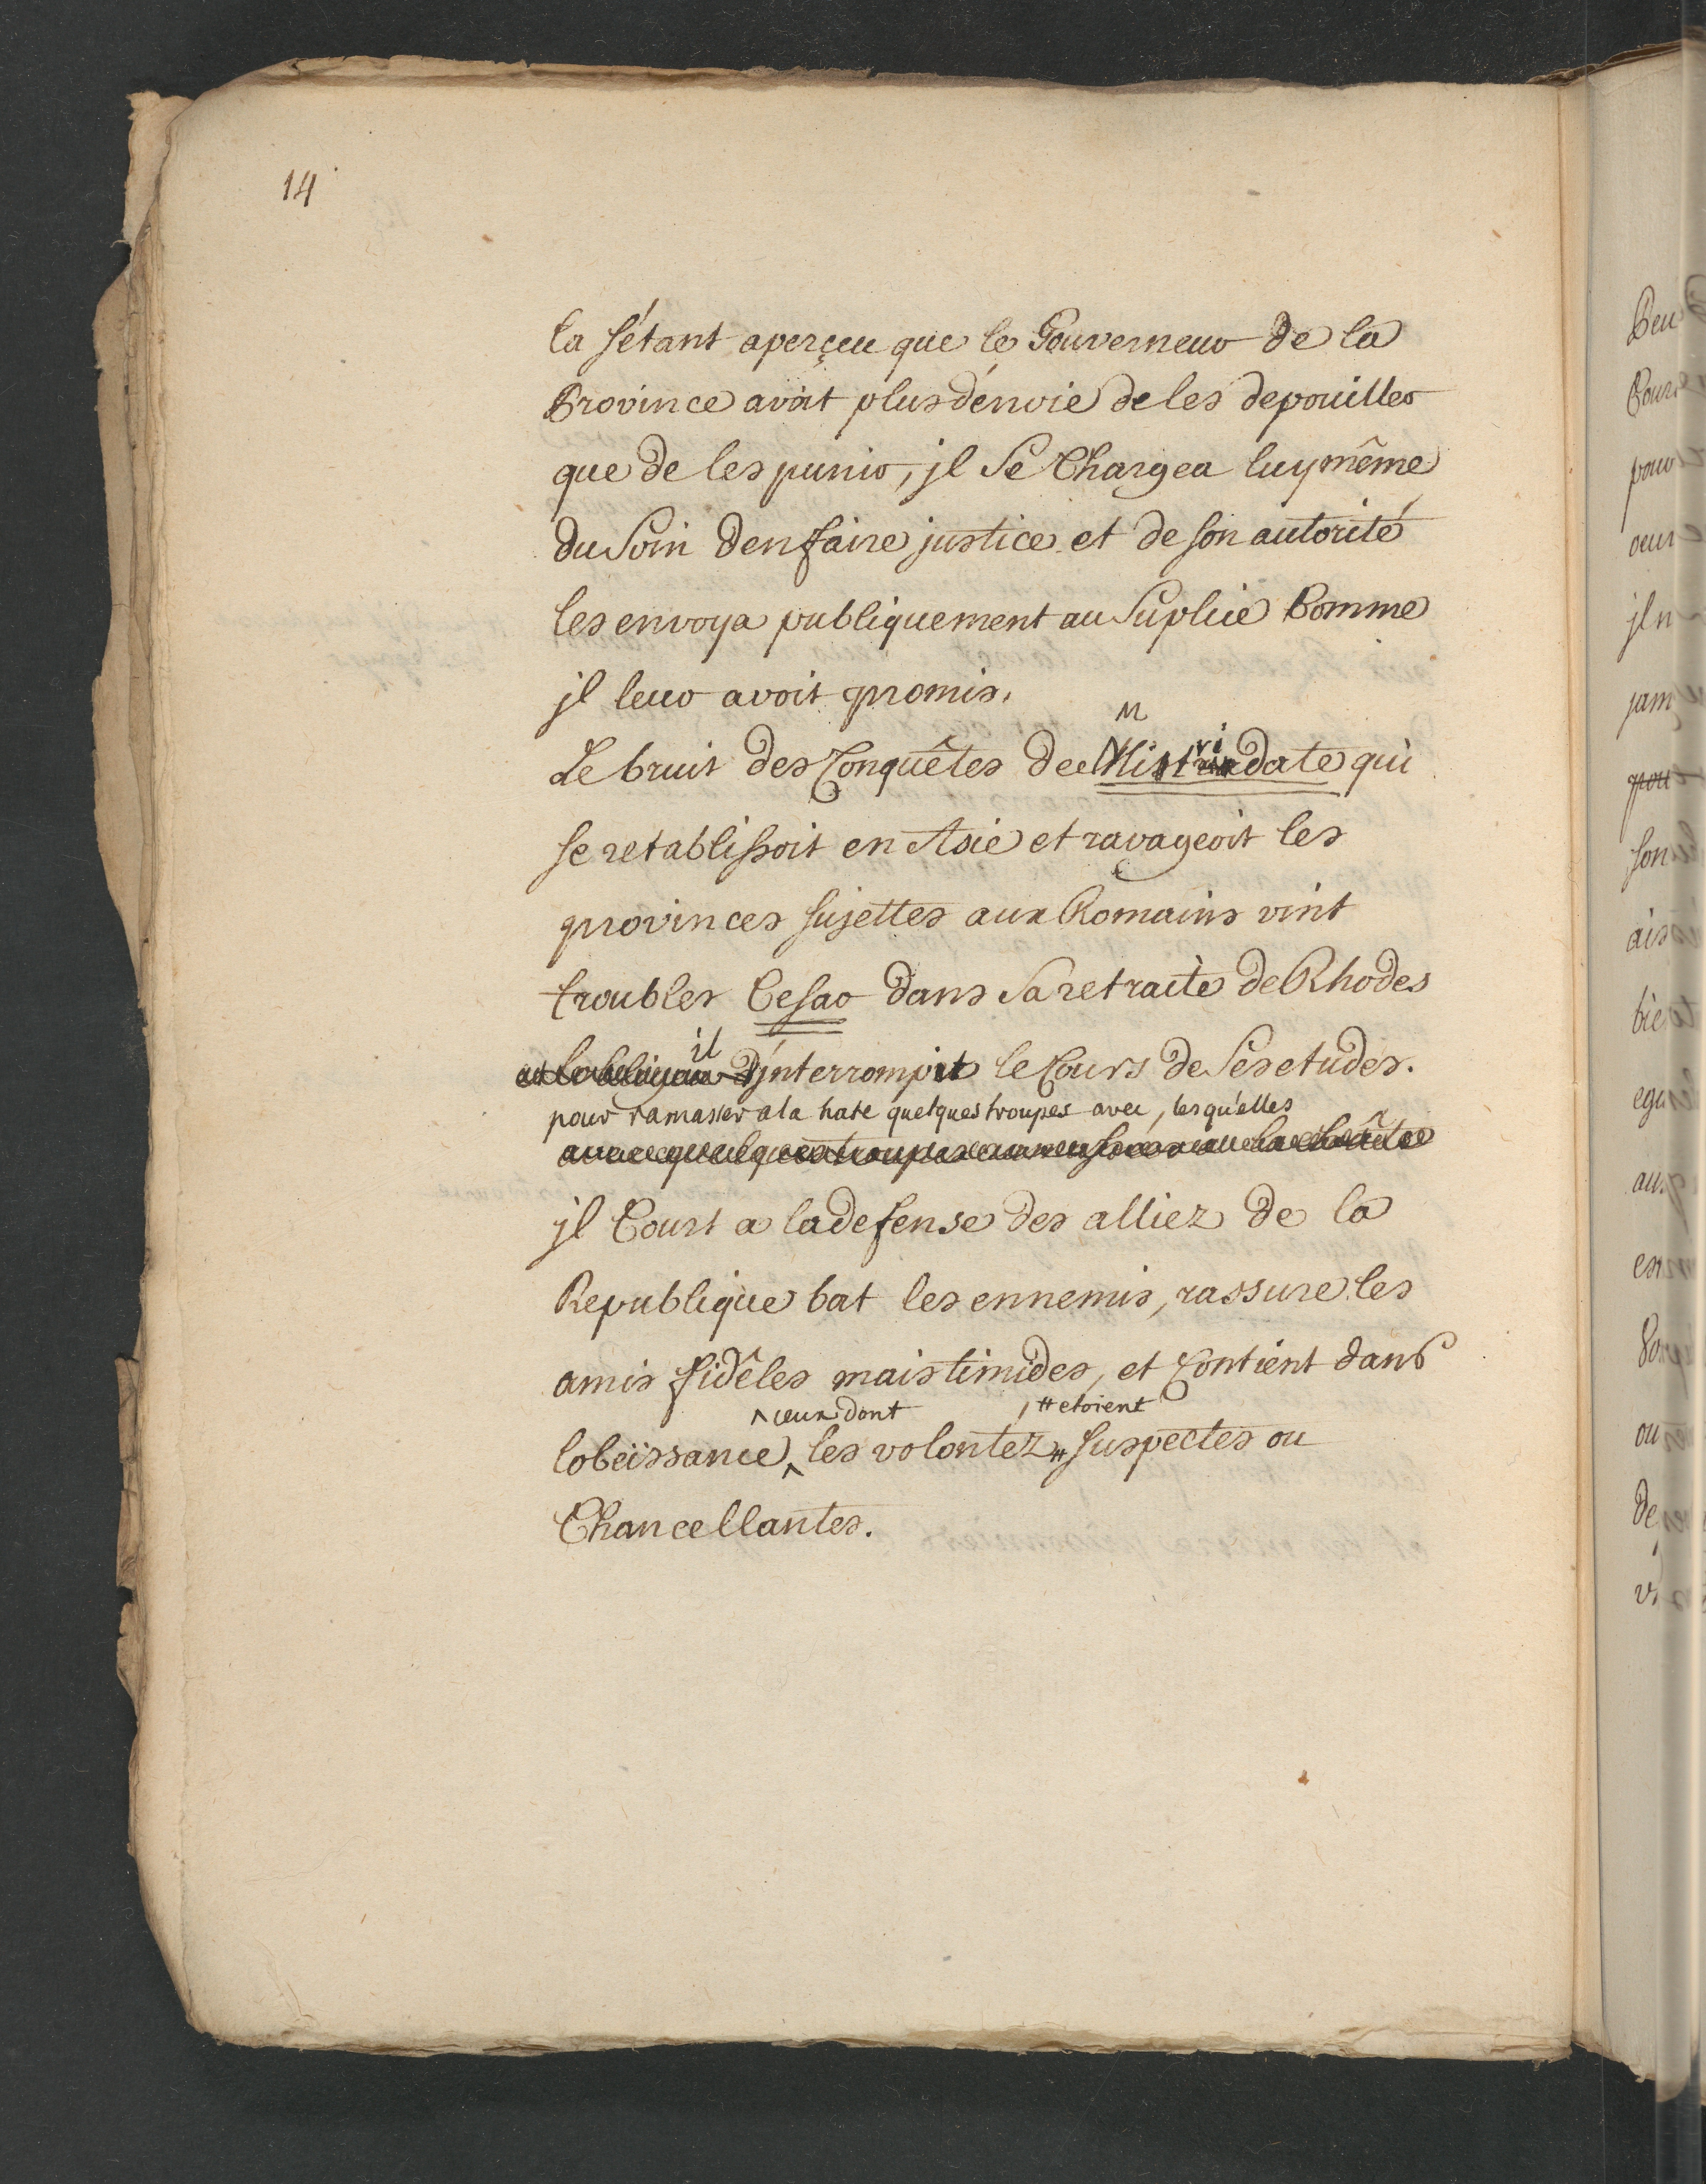 14
la s'étant aperçeu que le Gouverneur de la
Province avoit plus d'envie de les depouiller
que de les punir, jl se Chargea luy même
du Soin d'en faire justice et de son autorité
les envoya publiquement au Suplice Comme
jl leur avoit promis.
M
ri
Le bruit des Conquêtes de Mitridate qui
se retablissoit en Asie et ravageoit les
provinces sujettes aux Romains vint
troubler Cesar dans Sa retraite de Rhodes
il
jnterrompit le Cours de Ses etudes.
pour ramasser a la hate quelques troupes avec, lesqu'elles
jl Court a la defense des alliez de la
Republique bat les ennemis, rassure les
amis fidêles mais timides, et Contient dans
^ ceux dont # etoient
l'obeïssance ^ les volontez # suspectes ou
Chancellantes.